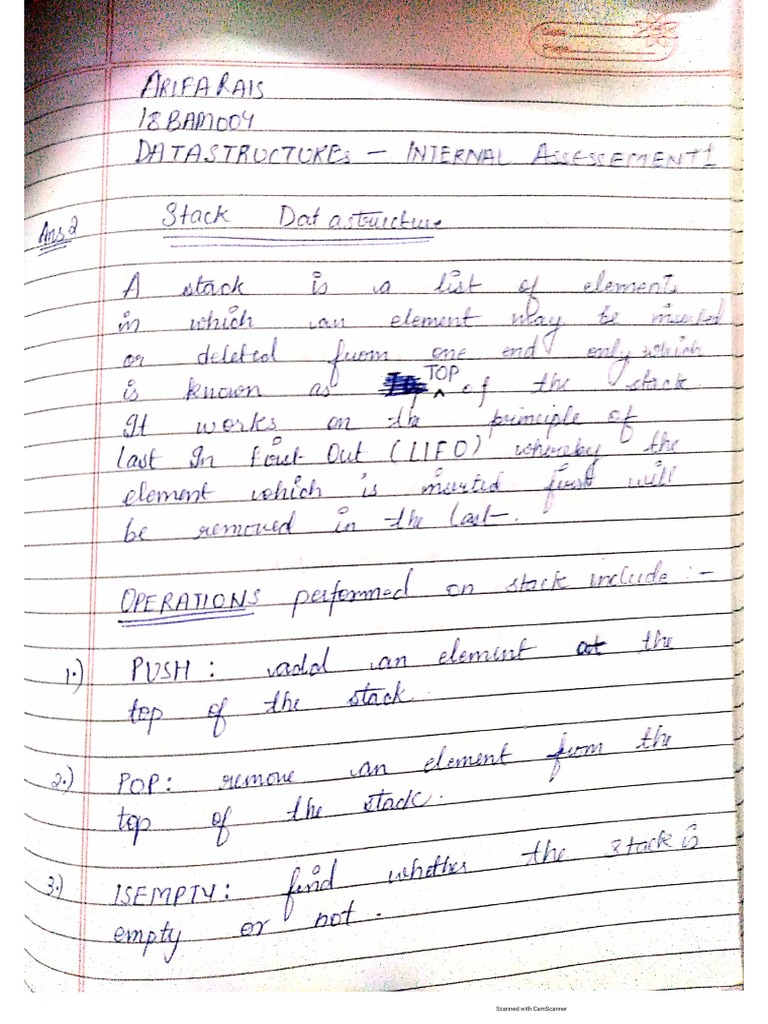 Date
Page
ARIFA RAIS
18BAM004
DATASTRUCTUREs – INTERNAL ASSESSEMENT 1
Ans 2
Stack Datastructure
A stack is a list of elements
in which an element may be inserted
or deleted from one end only which
is known as TOP of the stack.
It works on the principle of
last In First Out (LIFO) whereby the
element which is inserted first will
be removed in the last.
OPERATIONS performed on stack include :-
1.) PUSH : add an element at the
top of the stack.
2.) POP : remove an element from the
top of the stack.
3.) ISEMPTY : find whether the stack is
empty or not.
Scanned with CamScanner